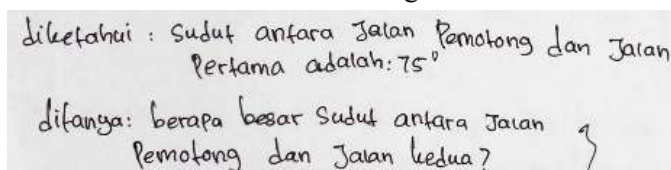 diketahui : Sudut antara Jalan Pemotong dan Jalan
Pertama adalah: 75°
ditanya: berapa besar Sudut antara Jalan
Pemotong dan Jalan kedua?